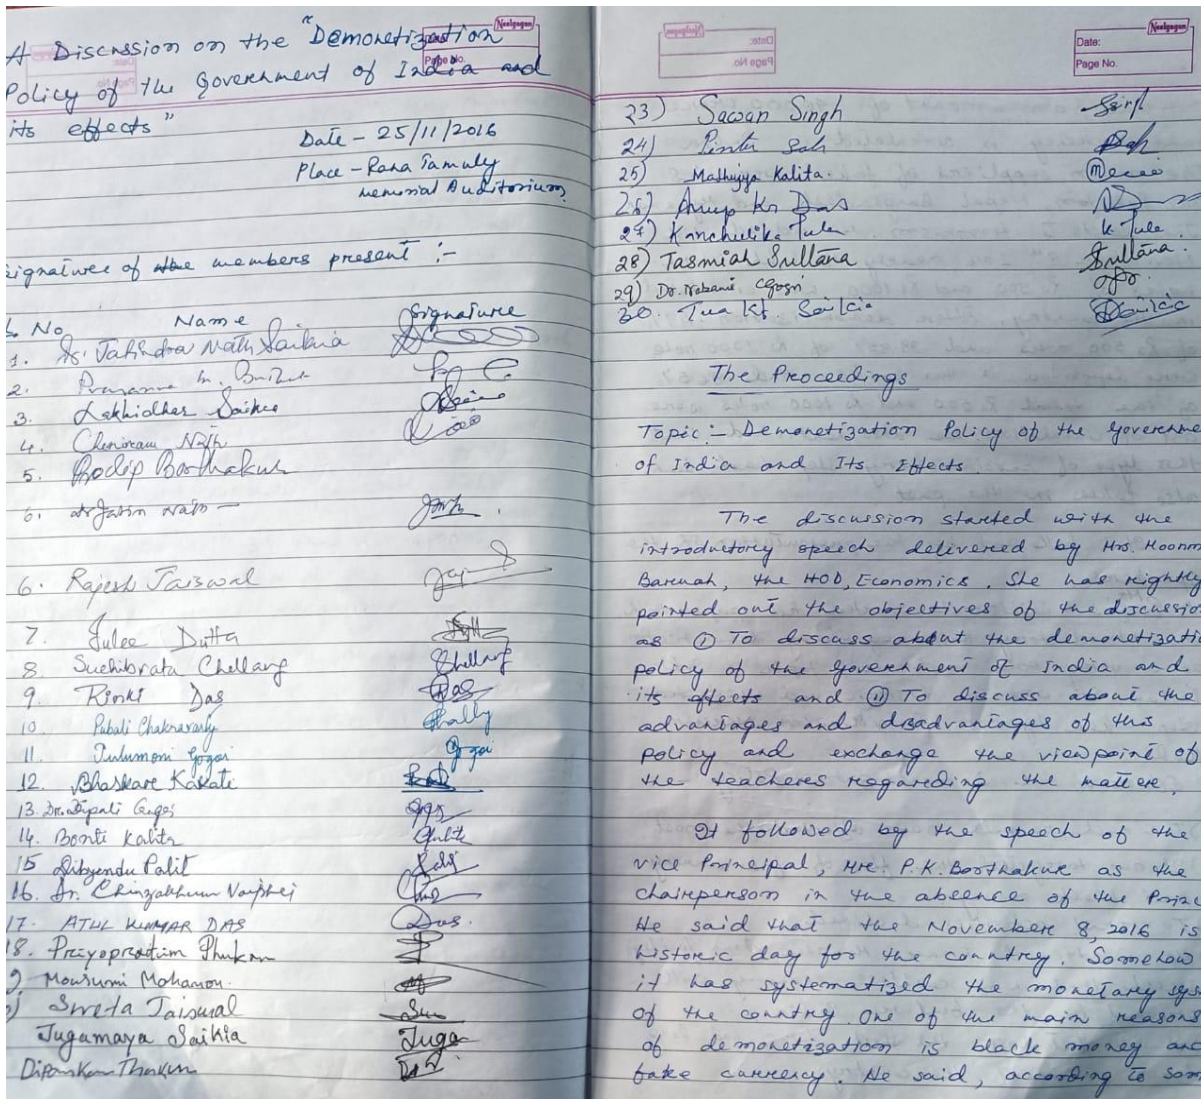 Neelgagan
A Discussion on the "Demonetization
Policy of the Government of India and
its effects"
Date - 25/11/2016
Place - Rana Tamuly
Memorial Auditorium
Signature of members present :-
No Name Signature
1. Dr. Jatindra Nath Saikia
2. Prasanna
3. Lakhidhar Saikia
4. Nath
5. Prodip Borthakur
6. Nath
6. Rajesh Jaiswal
7. Julee Dutta
8 Suchibrata Chellang Chellang
9. Rinki Das Das
10 Pubali Chakravarty
11. Julumoni Gogoi Gogoi
12. Bhaskar Kakate
13. Dr. Dipali Gogoi
14. Bonti Kalita
15 Dibyendu Palit
16. Dr. Chinzakhum Vaiphei
17. ATUL KUMAR DAS Das
18. Priyopratim Phukan
Mousumi Mohanan
Sweta Jaiswal
Jugamaya Saikia Juga
Dipankar Thakur
Neelgagan
Date:
Page No.
23) Sawan Singh
24) Pinku Sah
25) Kalita.
26) Anup Kr Das
27) Kanchulika Tule K. Tule
28) Tasmiah Sultana Sultana
29) Dr. Nabani Gogoi
30. Saikia Saikia
The Proceedings
Topic :- Demonetization Policy of the Governme
of India and Its Effects.
The discussion started with the
introductory speech delivered by Mrs. Moonm
Baruah, the HOD, Economics. She has rightly
pointed out the objectives of the discussio
as (i) To discuss about the demonetizati
policy of the Government of India and
its effects and (ii) To discuss about the
advantages and disadvantages of this
policy and exchange the viewpoint of
the teacheres regareding the mattere.
It followed by the speech of the
vice Principal, Mr. P.K. Borthakur as the
chairperson in the absence of the Princ
He said that the November 8, 2016 is
historic day for the country. Somehow
it has systematized the monetary sys
of the country. One of the main reasons
of demonetization is black money and
fake currency. He said, according to som